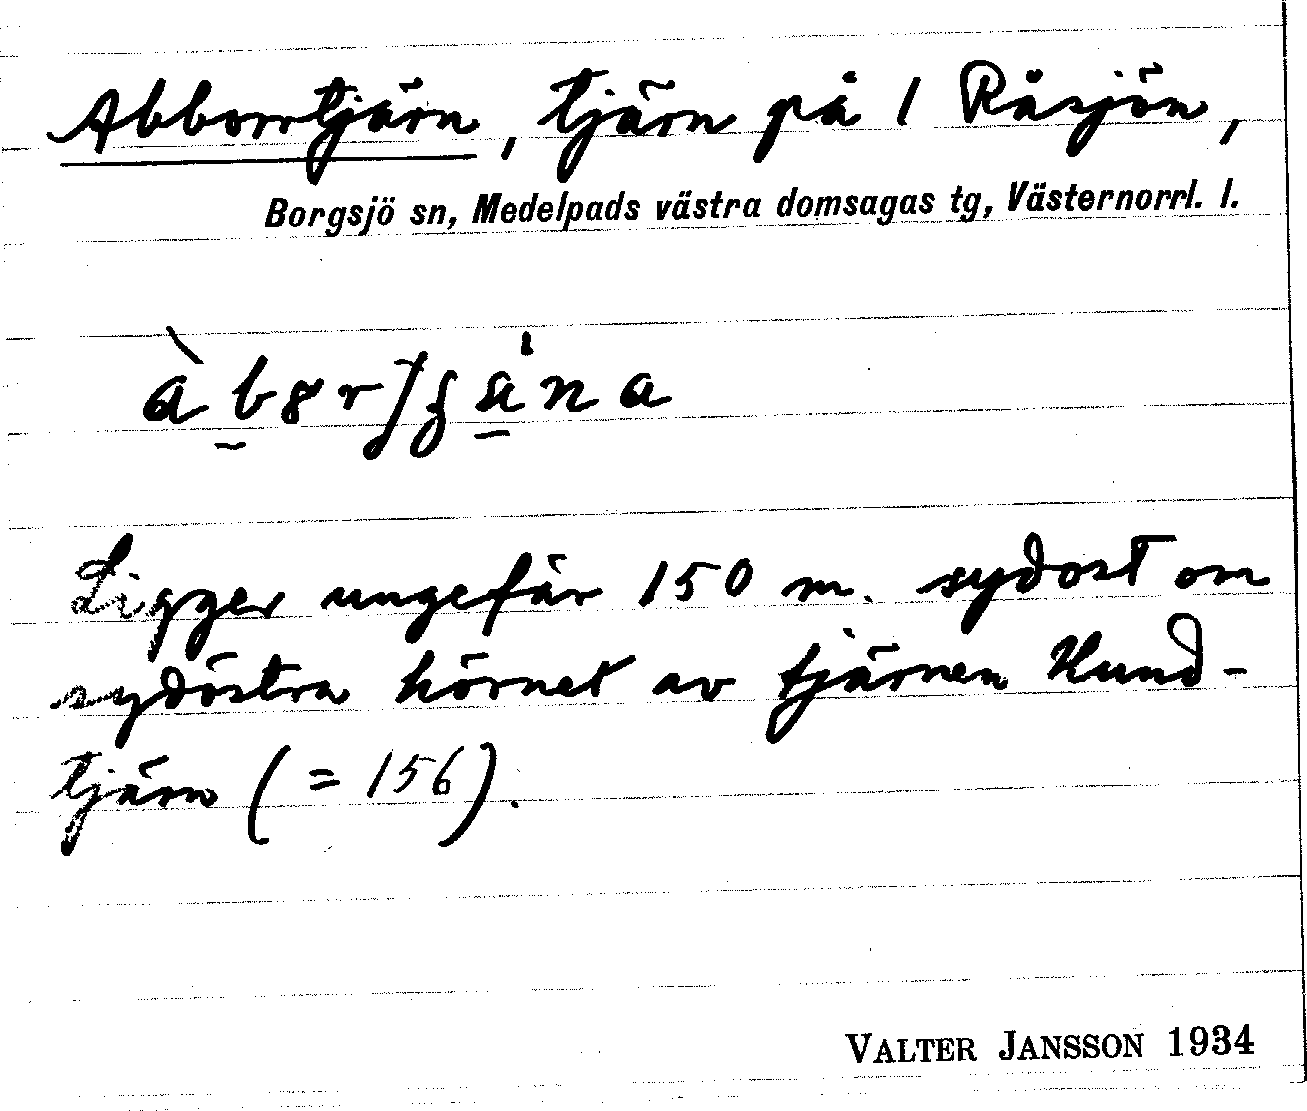 Abborrtjärn, tjärn på 1 Råsjön,
Borgsjö sn, Medelpads västra domsagas tg, Västernorrl. l.
Ligger ungefär 150 m. sydost om
sydöstra hörnet av tjärnen Hund-
tjärn (= 156).
VALTER JANSSON 1934